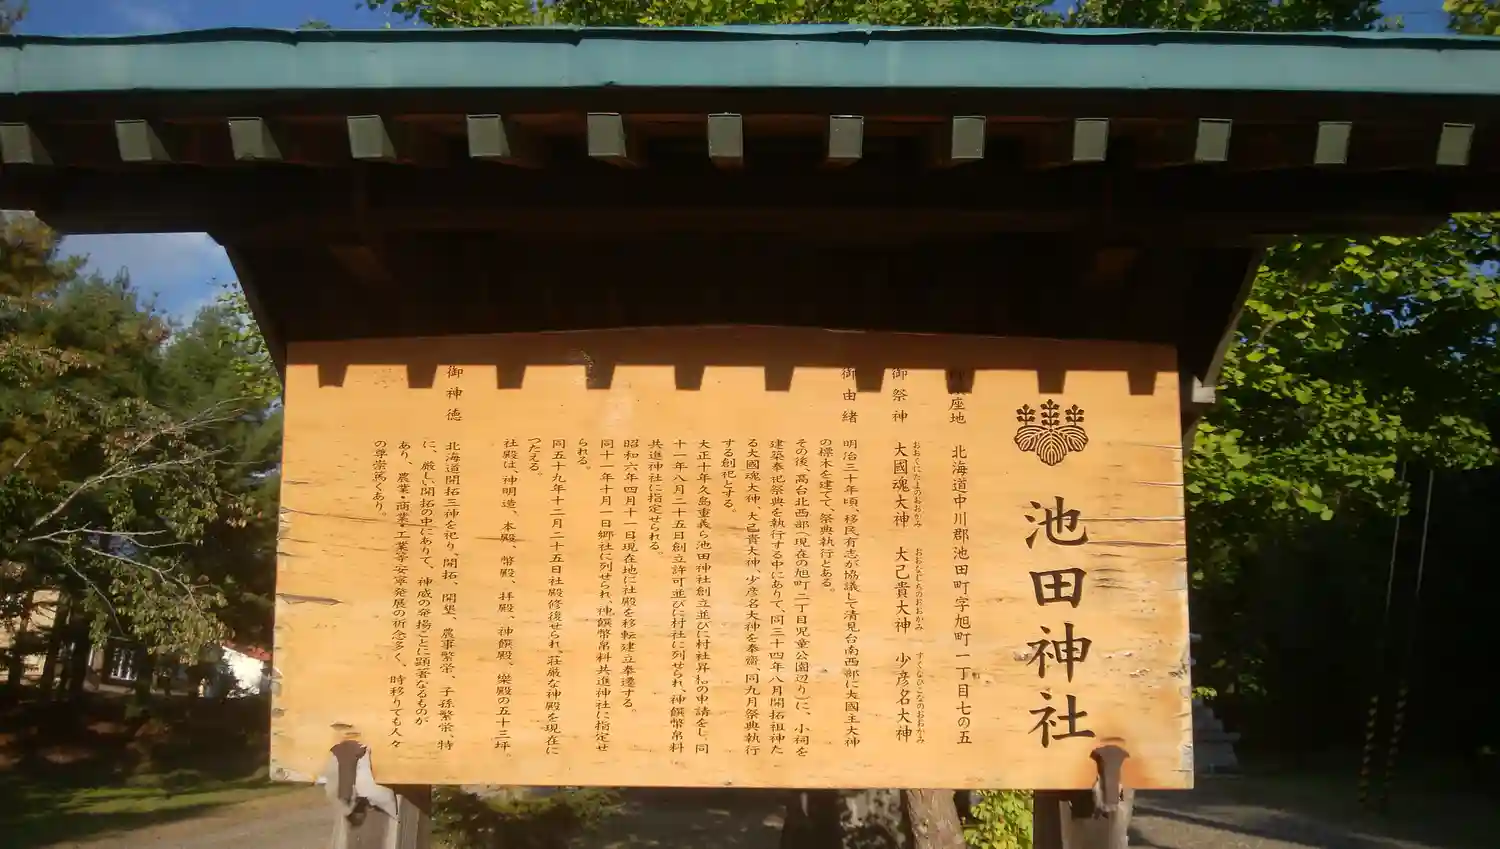 池田神社
座地　北海道中川郡池田町字旭町一丁目七の五
御祭神　大國魂大神　大己貴大神　少彦名大神
おおくにたまのおおかみ　おおなむちのおおかみ　すくなひこなのおおかみ
御由緒　明治三十年頃、移民有志が協議して清見台南西部に大國主大神
の標木を建てて、祭典執行とある。
その後、高台北西部（現在の旭町二丁目児童公園辺り）に、小祠を
建築奉祀祭典を執行する中にありて、同三十四年八月開拓祖神た
る大國魂大神、大己貴大神、少彦名大神を奉齋、同九月祭典執行
する創祀とする。
大正十年久島重義ら池田神社創立並びに村社昇格の申請をし、同
十一年八月二十五日創立許可並びに村社に列せられ、神饌幣帛料
共進神社に指定せられる。
昭和六年四月十一日現在地に社殿を移転建立奉遷する。
同十一年十月一日郷社に列せられ、神饌幣帛料共進神社に指定せ
られる。
同五十九年十二月二十五日社殿修復せられ、荘厳な神殿を現在に
つたえる。
社殿は、神明造、本殿、幣殿、拝殿、神饌殿、樂殿の五十三坪。
御神徳　北海道開拓三神を祀り、開拓、開墾、農事繁栄、子孫繁栄、特
に、厳しい開拓の中にありて、神威の発揚ことに顕著なるものが
あり、農業・商業・工業等安寧発展の祈念多く、時移りても人々
の尊崇篤くあり。